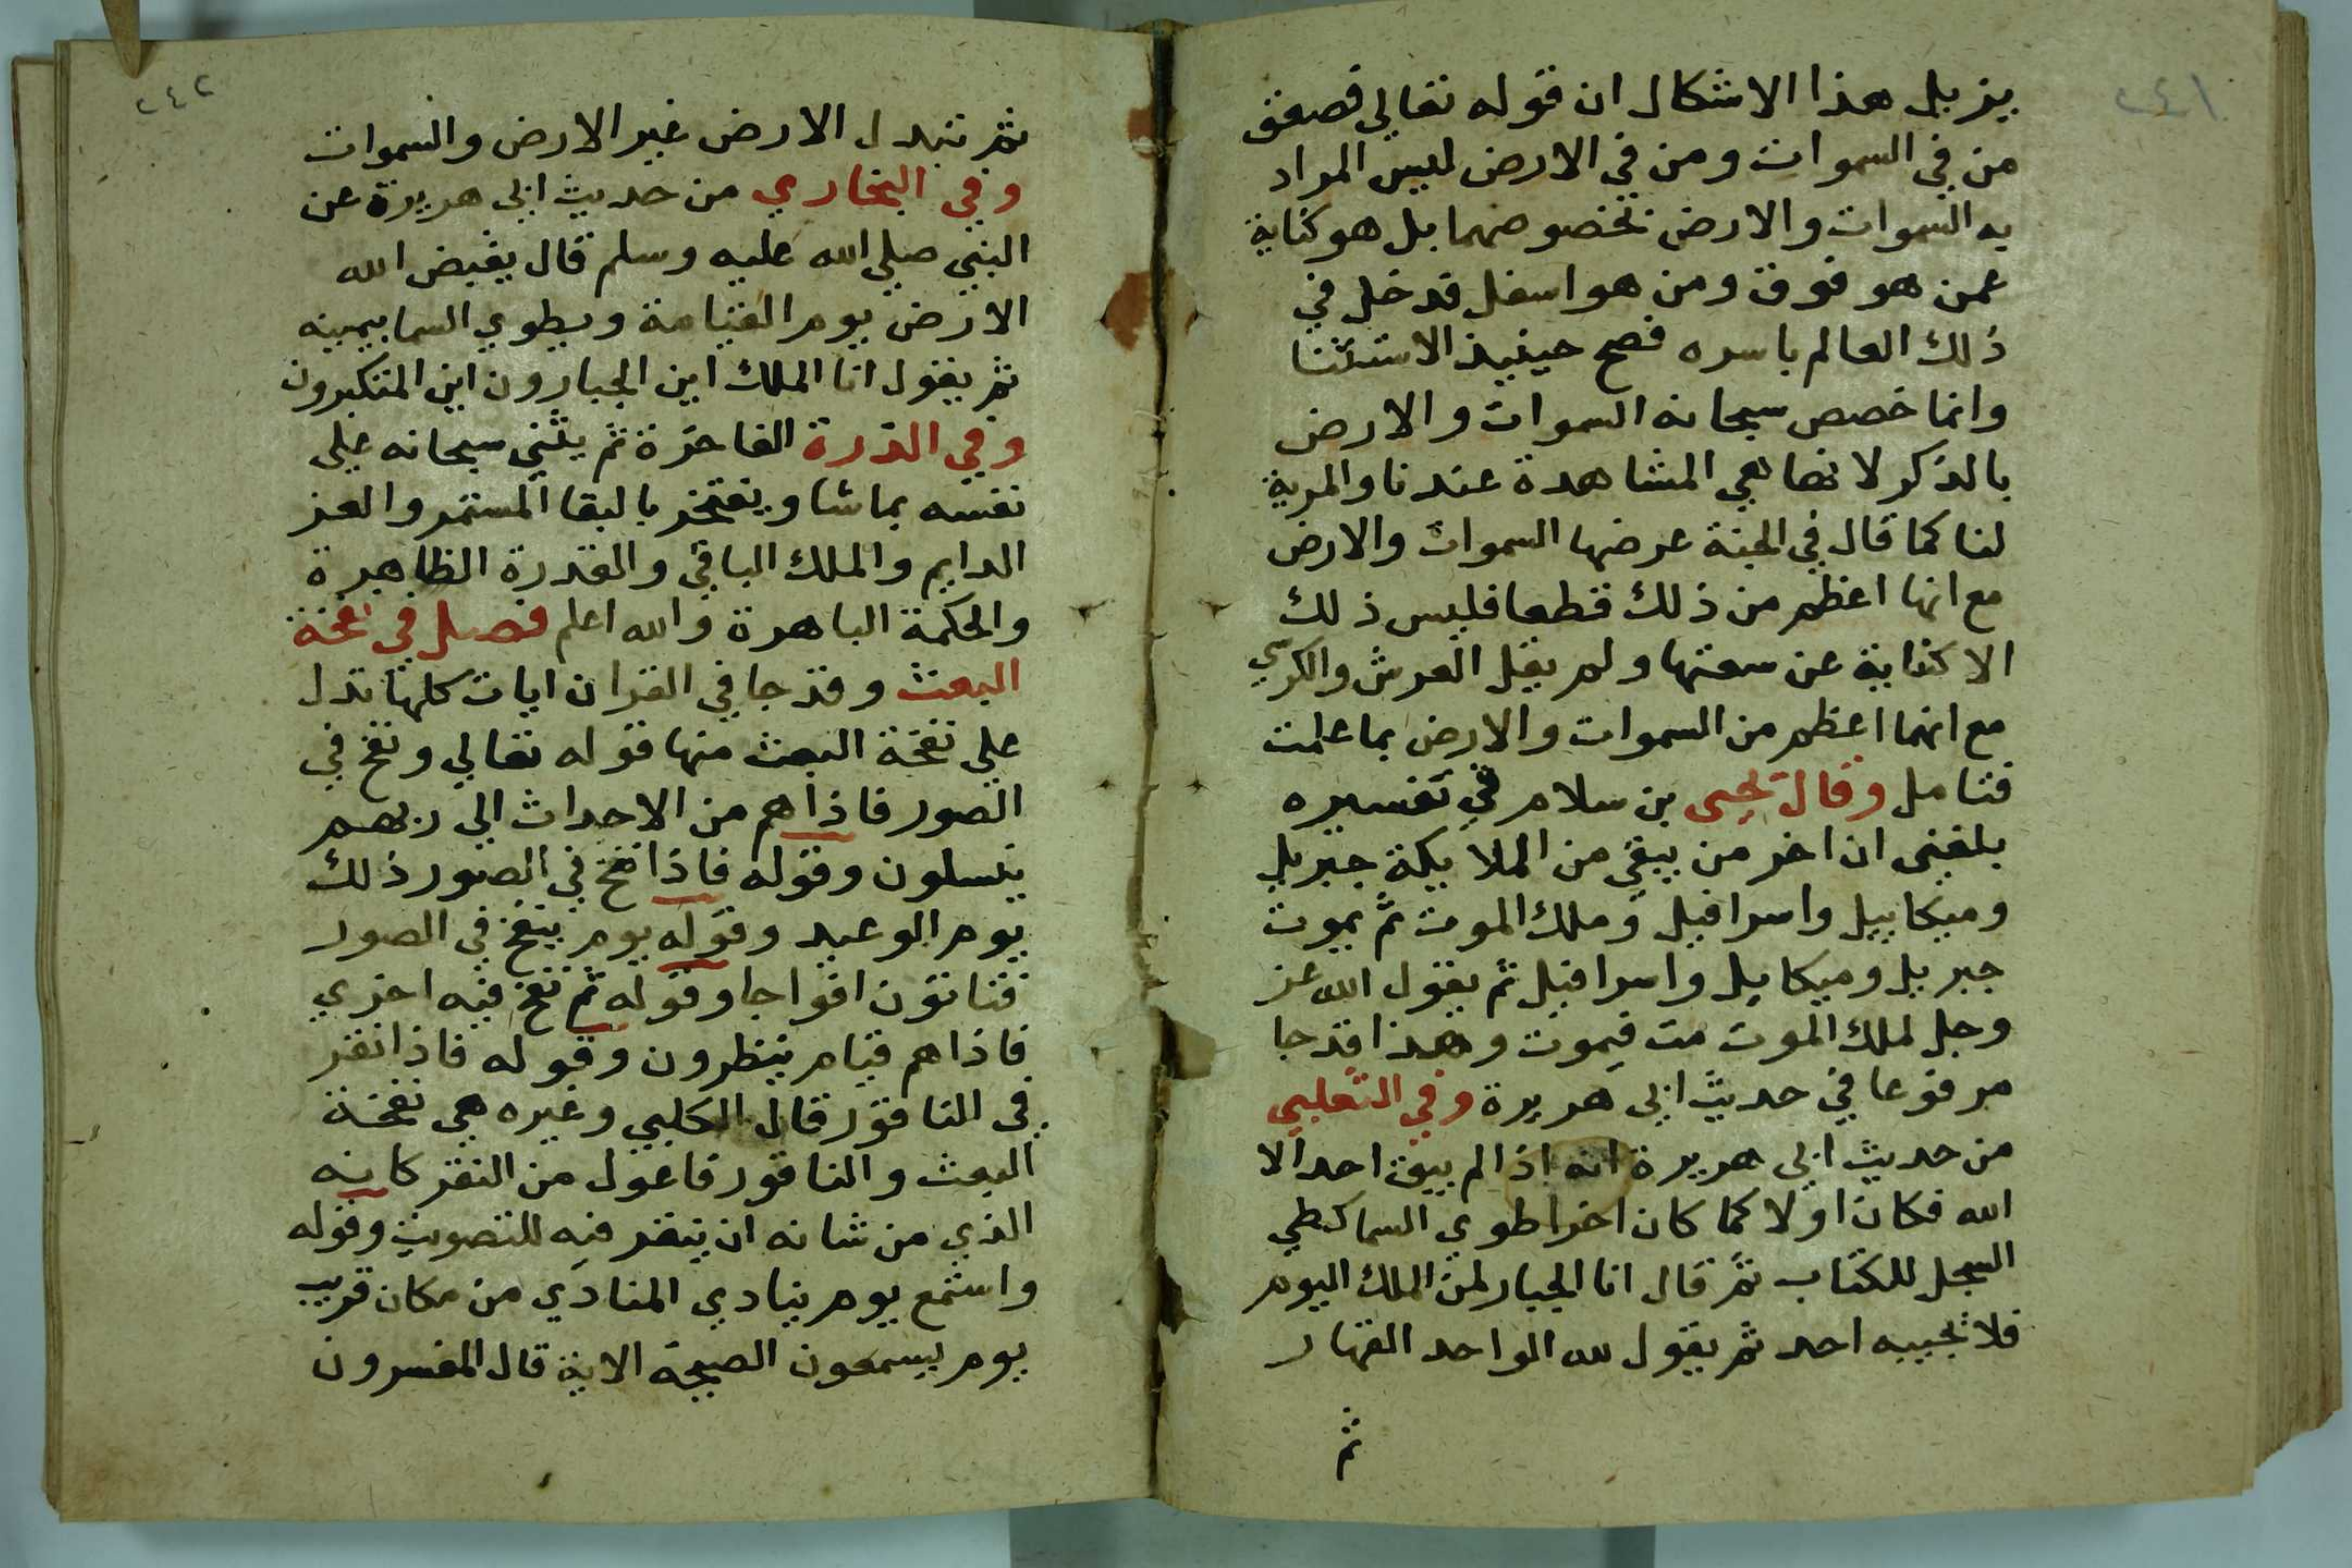 ٢٤١
يزيل هذا الاشكال ان قوله تعالي فصعق
من في السموات ومن في الارض ليس المراد
به السموات والارض بخصوصهما بل هو كناية
عمن هو فوق ومن هو اسفل فدخل في
ذلك العالم باسره فصح حينيذ الاستثنا
وانما خصص سبحانه السموات والارض
بالذكر لانها هي المشاهدة عندنا والمرية
لنا كما قال في الجنة عرضها السموات والارض
مع انها اعظم من ذلك قطعا فليس ذلك
الا كناية عن سعتها ولم يقل العرش والكرسي
مع انهما اعظم من السموات والارض بما علمت
فتامل وقال يحيى بن سلام في تفسيره
بلغنى ان اخر من يبقي من الملايكة جبريل
وميكاييل واسرافيل وملك الموت ثم يموت
جبريل وميكاييل واسرافيل ثم يقول الله عز
وجل لملك الموت مت فيموت وهذا قد جا
مرفوعا في حديث ابى هريرة وفي الثعلبي
من حديث ابي هريرة انه اذا لم يبق احد الا
الله فكان اولا كما كان اخرا طوي السما كطي
السجل للكتاب ثم قال انا الجبار لمن الملك اليوم
فلا يجيبه احد ثم يقول لله الواحد القهار
ثم
٢٤٢
ثم تبدل الارض غير الارض والسموات
وفي البخاري من حديث ابى هريرة عن
النبي صلي الله عليه وسلم قال يقبض الله
الارض يوم القيامة ويطوي السما بيمينه
ثم يقول انا الملك اين الجبارون اين المتكبرون
وفي الدرة الفاخرة ثم يثني سبحانه على
نفسه بما شا ويفتخر بالبقا المستمر والعز
الدايم والملك الباقي والقدرة الظاهرة
والحكمة الباهرة والله اعلم فصل في نفخة
البعث وقد جا في القران ايات كلها تدل
علي نفخة البعث منها قوله تعالي ونفخ في
الصور فاذا هم من الاجداث الى ربهم
ينسلون وقوله فاذا نفخ في الصور ذلك
يوم الوعيد وقوله يوم ينفخ في الصور
فتاتون افواجا وقوله ثم نفخ فيه اخري
فاذا هم قيام ينظرون وقوله فاذا نقر
في الناقور قال الكلبي وغيره هي نفخة
البعث والناقور فاعول من النقر كانه
الذي من شانه ان ينقر فيه للتصويت وقوله
واستمع يوم ينادي المنادي من مكان قريب
يوم يسمعون الصيحة الاية قال المفسرون